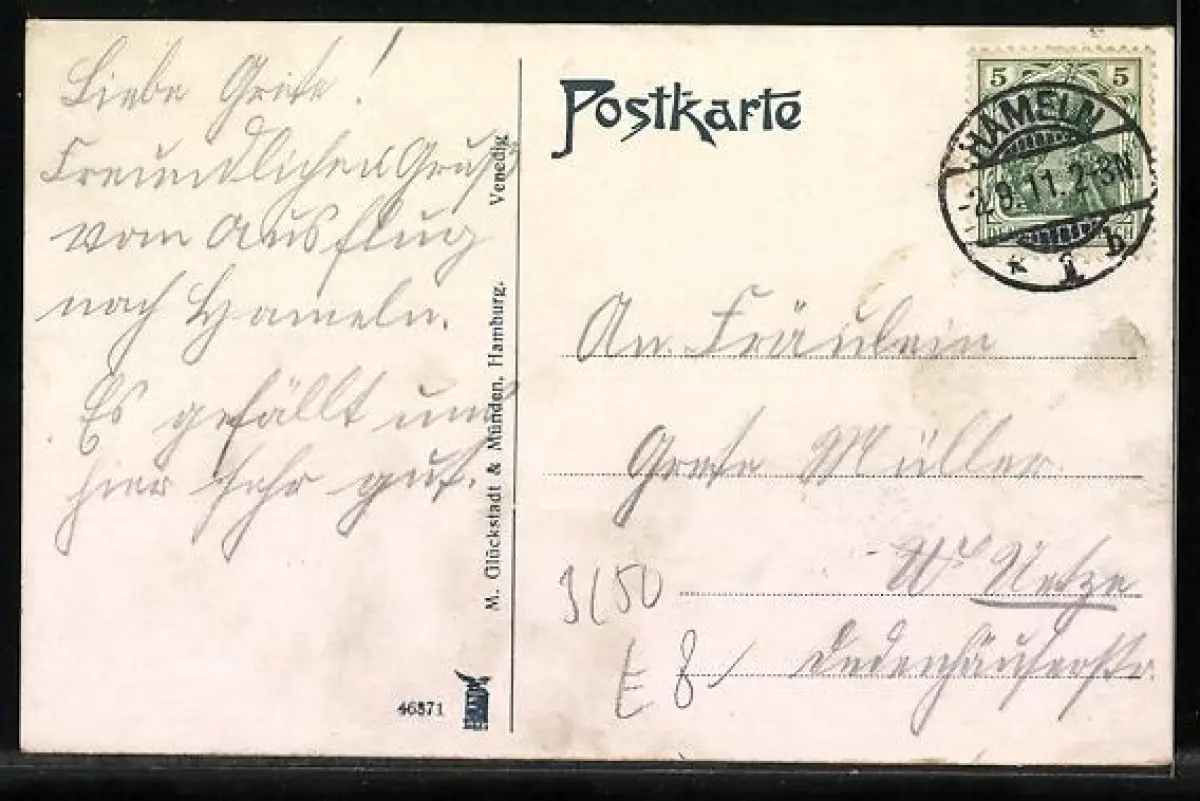 Liebe Grete!
Freundlichen Gruß
vom Ausflug
nach Hameln.
Es gefällt uns
hier sehr gut.
M. Glückstadt & Münden, Hamburg. Venedig.
46371
Postkarte
5 5
HAMELN
-2.9.11.2-3N.
* 1 b
An Fräulein
Grete Müller
Uetze
Dedenhäuserstr.